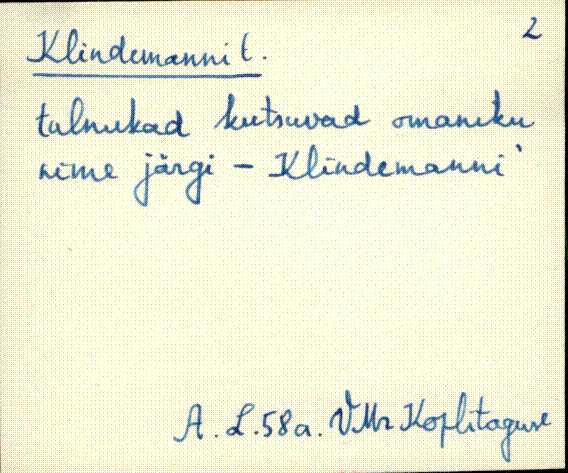 2
Klindemanni t.
talnukad kutsuvad omaniku
nime järgi – Klindemanni'
A. L. 58a. VMr Koplitaguse